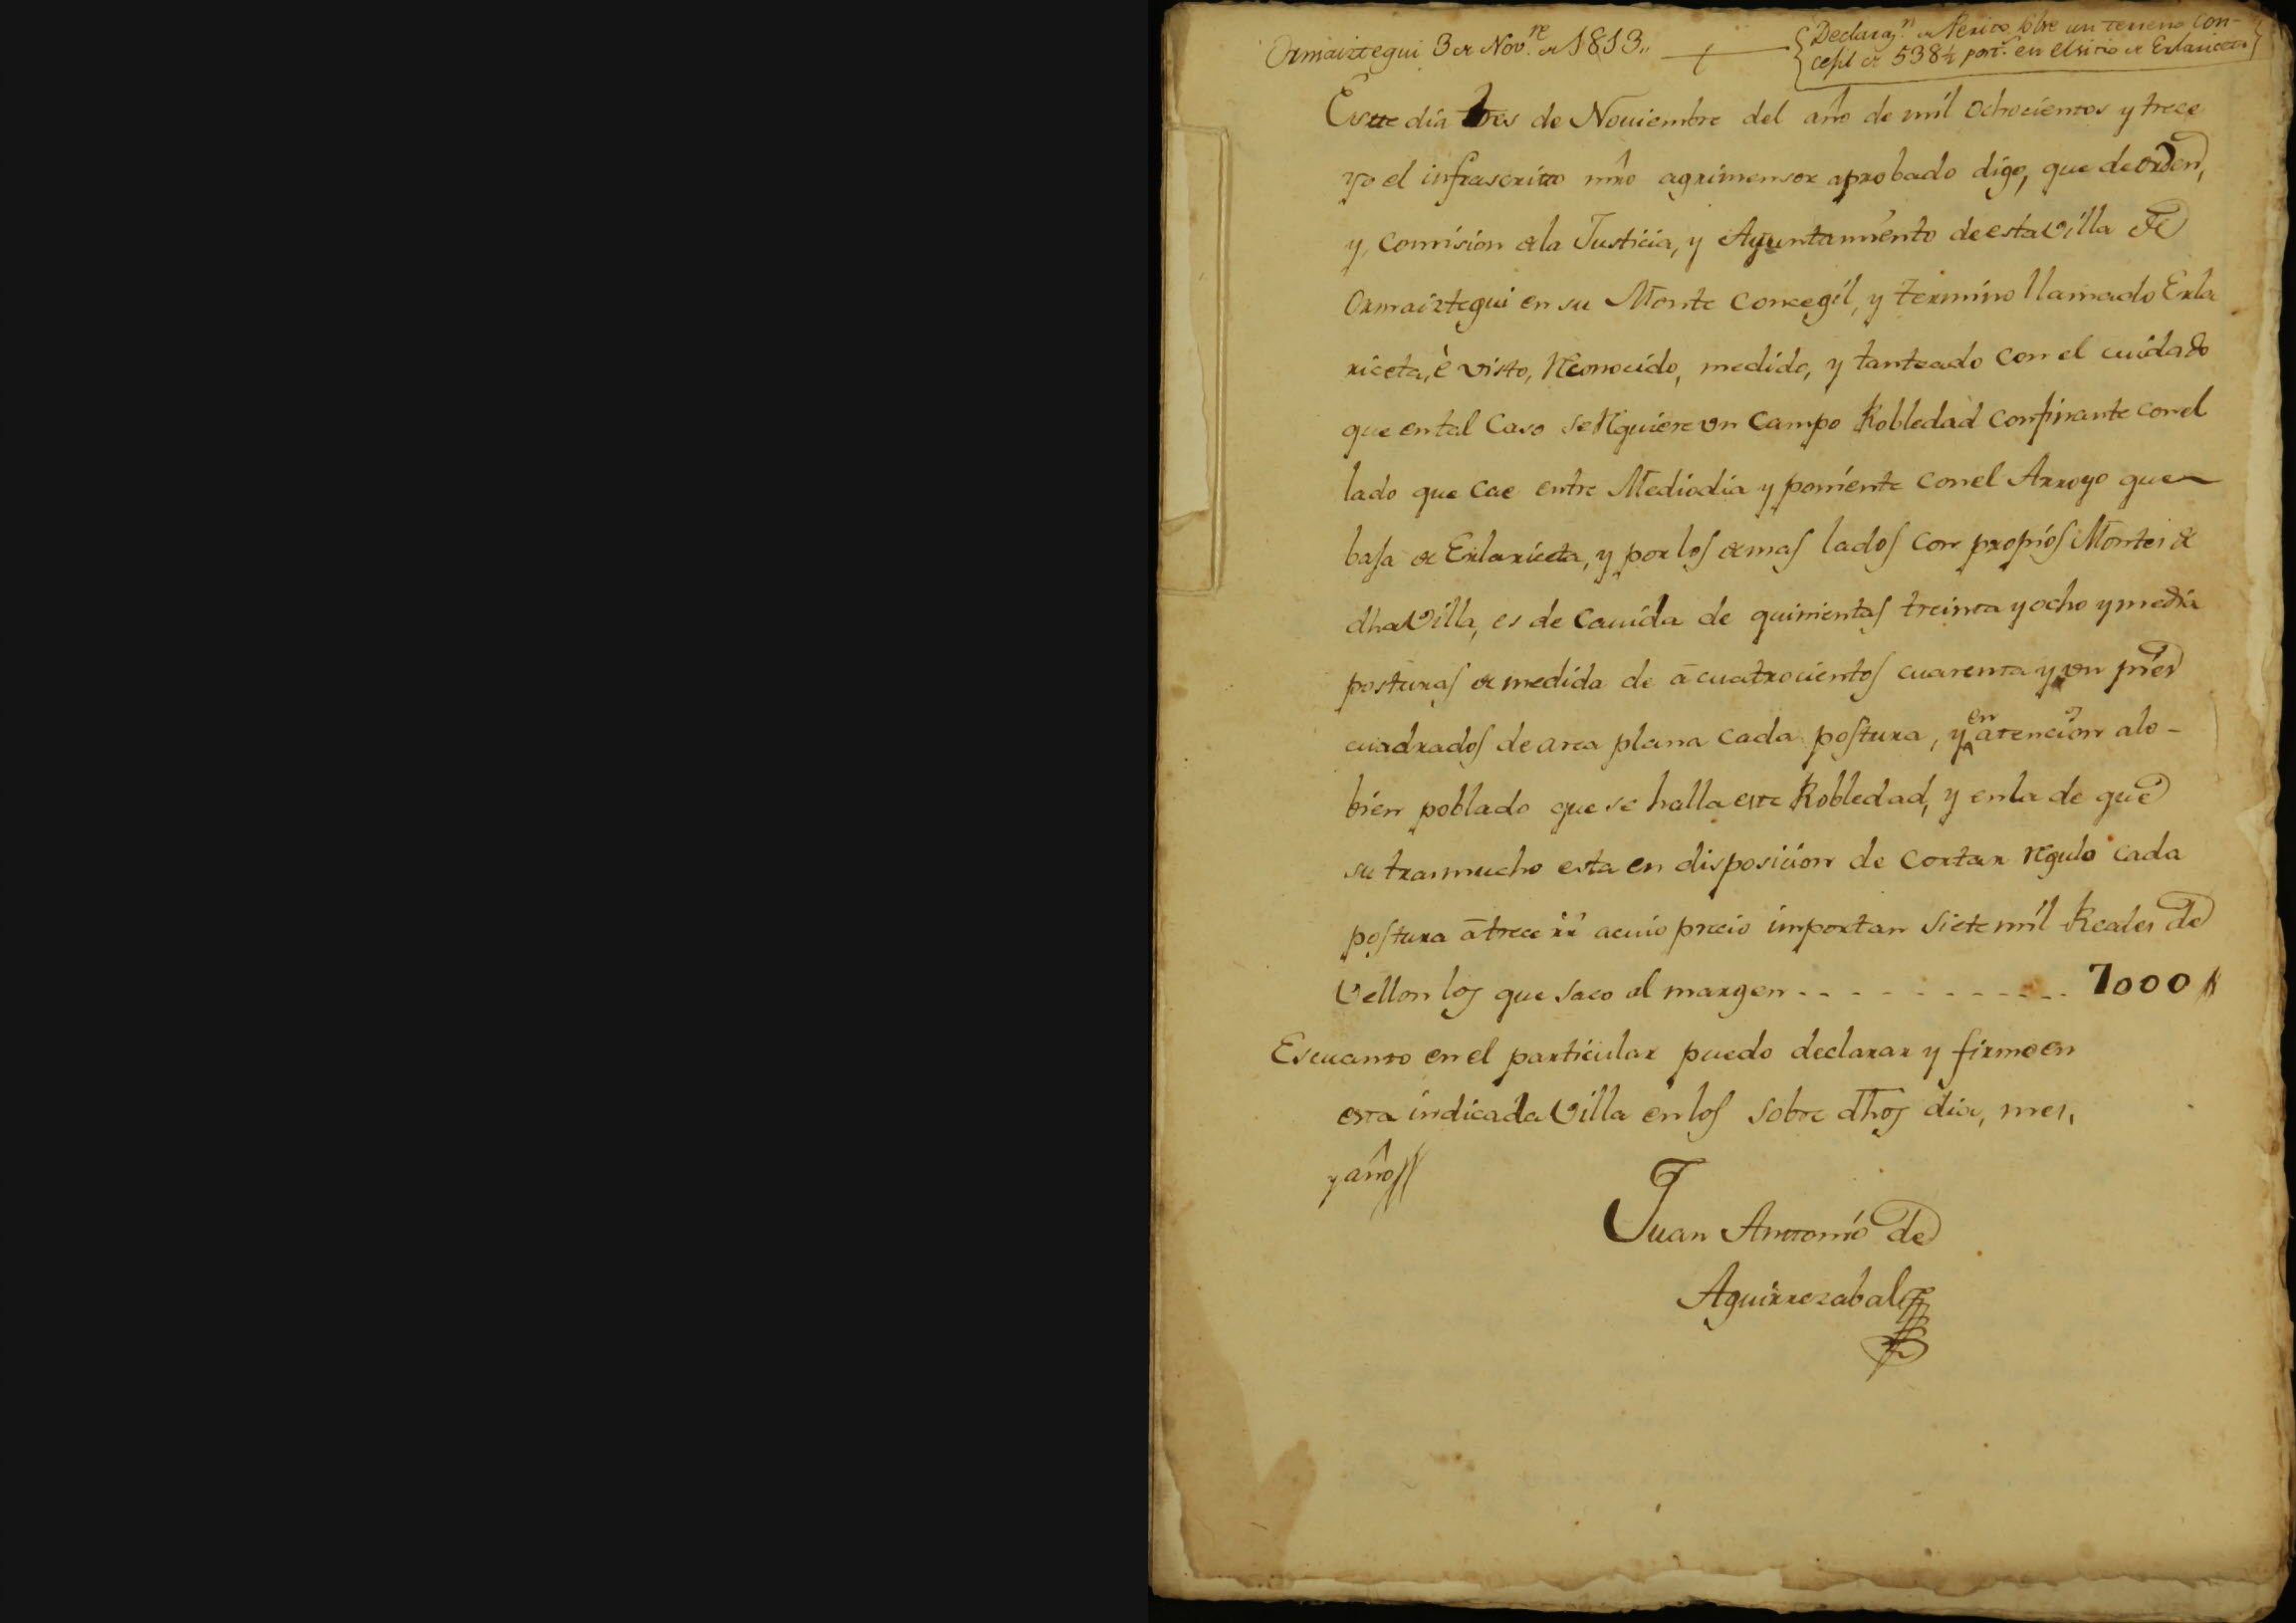 Ormaiztegui 3 de Nov.re de 1813.,
Declaraz.n de Perito sobre un terreno con-
cejil de 538½ post.s en el sitio de Erlariceta
Este dia tres de Nouiembre del año de mil ochocientos y trece
yo el infrascritto mro agrimensor aprobado digo, que de orden,
y, Comision de la Justicia, y Ayuntamiento de esta Villa de
Ormaiztegui en su Monte Concegil, y termino llamado Erla
riceta, è visto, Reconocido, medido, y tanteado con el cuidado
que en tal Caso se Rquiere vn Campo Robledad Confinante con el
lado que Cae entre Mediodia y poniente con el Arroyo que
basa de Erlariceta, y por los demas lados con propios Montes de
dha Villa, es de Cauida de quinientas treinta y ocho y media
posturas de medida de à cuatrocientos cuarenta y vn pies
cuadrados de area plana Cada postura, y en atencion alo-
bien poblado que se halla este Robledad, y en la de que
su trasmucho esta en disposicion de Cortar Regulo Cada
postura à trece rr.s acuio precio importan Siete mil Reales de
Vellon los que saco al margen - - - - - - - - - - - 7000
Es cuanto en el particular puedo declarar y firmo en
esta indicada Villa en los Sobre dhos dia, mes,
y año
Juan Antonio de
Aguirrezabal